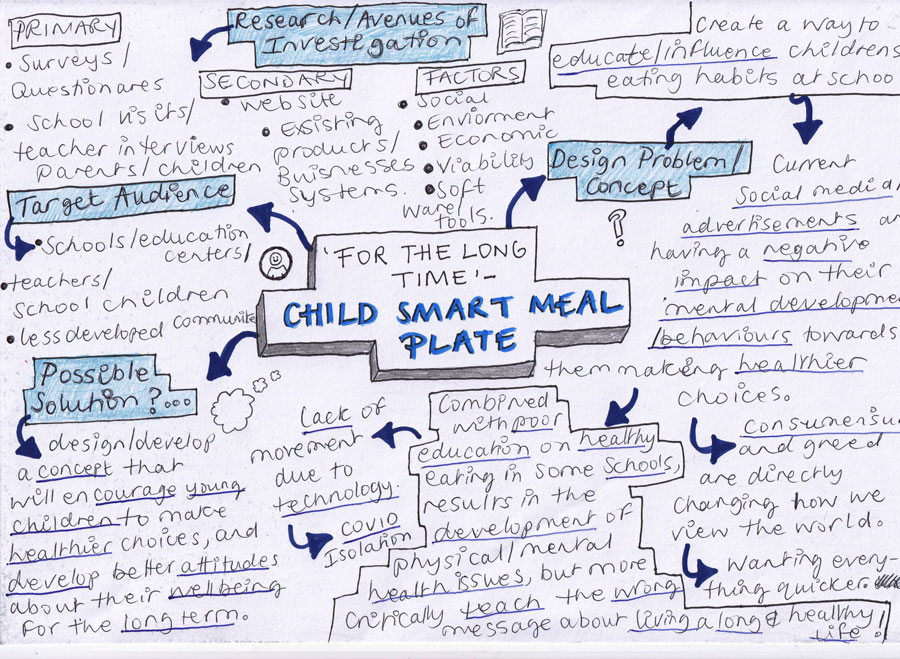 'FOR THE LONG
TIME'-
CHILD SMART MEAL
PLATE
Research/Avenues of
Investigation
PRIMARY
• Surveys/
Questionares
• School visits/
teacher interviews
parents/children
SECONDARY
• Website
• Exsisting
products/
Buisnesses
systems.
FACTORS
• Social
• Enviorment
• Economic
• Viability
• Soft
ware/
tools.
Target Audience
• Schools/education
centers/
• teachers/
School children
• less developed communite
Possible
Solution?...
design/develop
a concept that
will encourage young
children to make
healthier choices, and
develop better attitudes
about their wellbeing
for the long term.
Design Problem/
Concept
?
Create a way to
educate/influence childrens
eating habits at schoo
Current
Social media
advertisements a
having a negative
impact on their
mental developmen
/behaviours towards
them making healthier
choices.
Consumensu
and greed
are directly
changing how we
view the world.
Wanting every-
thing quicker.
Combined
with poor
education on healthy
eating in some Schools,
results in the
development of
physical/mental
health issues, but more
Critically teach the wrong
message about living a long & healthy
life!
Lack of
movement
due to
technology.
COVID
Isolation